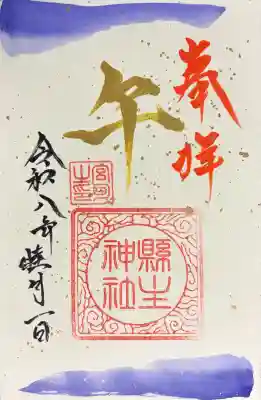 奉拝
午
宮司之印
縣主神社
令和八年睦月一日